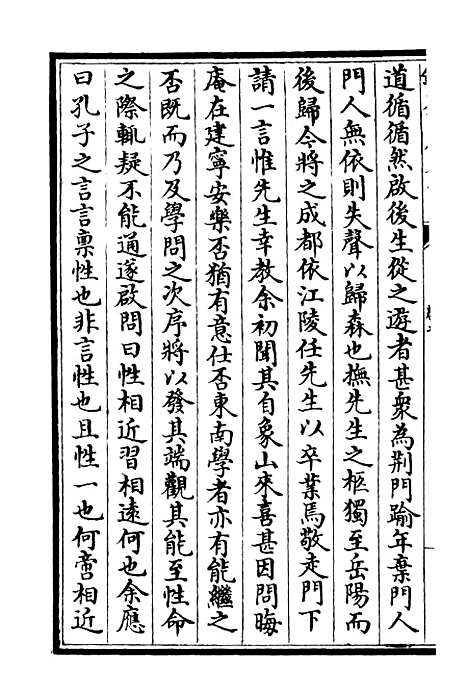 道循循然啟後生從之遊者甚衆為荆門踰年棄門人
門人無依則失聲以歸森也撫先生之柩獨至岳陽而
後歸今將之成都依江陵任先生以卒業焉敬走門下
請一言惟先生幸教余初聞其自象山來喜甚因問晦
庵在建寧安樂否猶有意仕否東南學者亦有能繼之
否既而乃及學問之次序將以發其端觀其能至性命
之際輒疑不能通遂啟問曰性相近習相遠何也余應
曰孔子之言言禀性也非言性也且性一也何啻相近